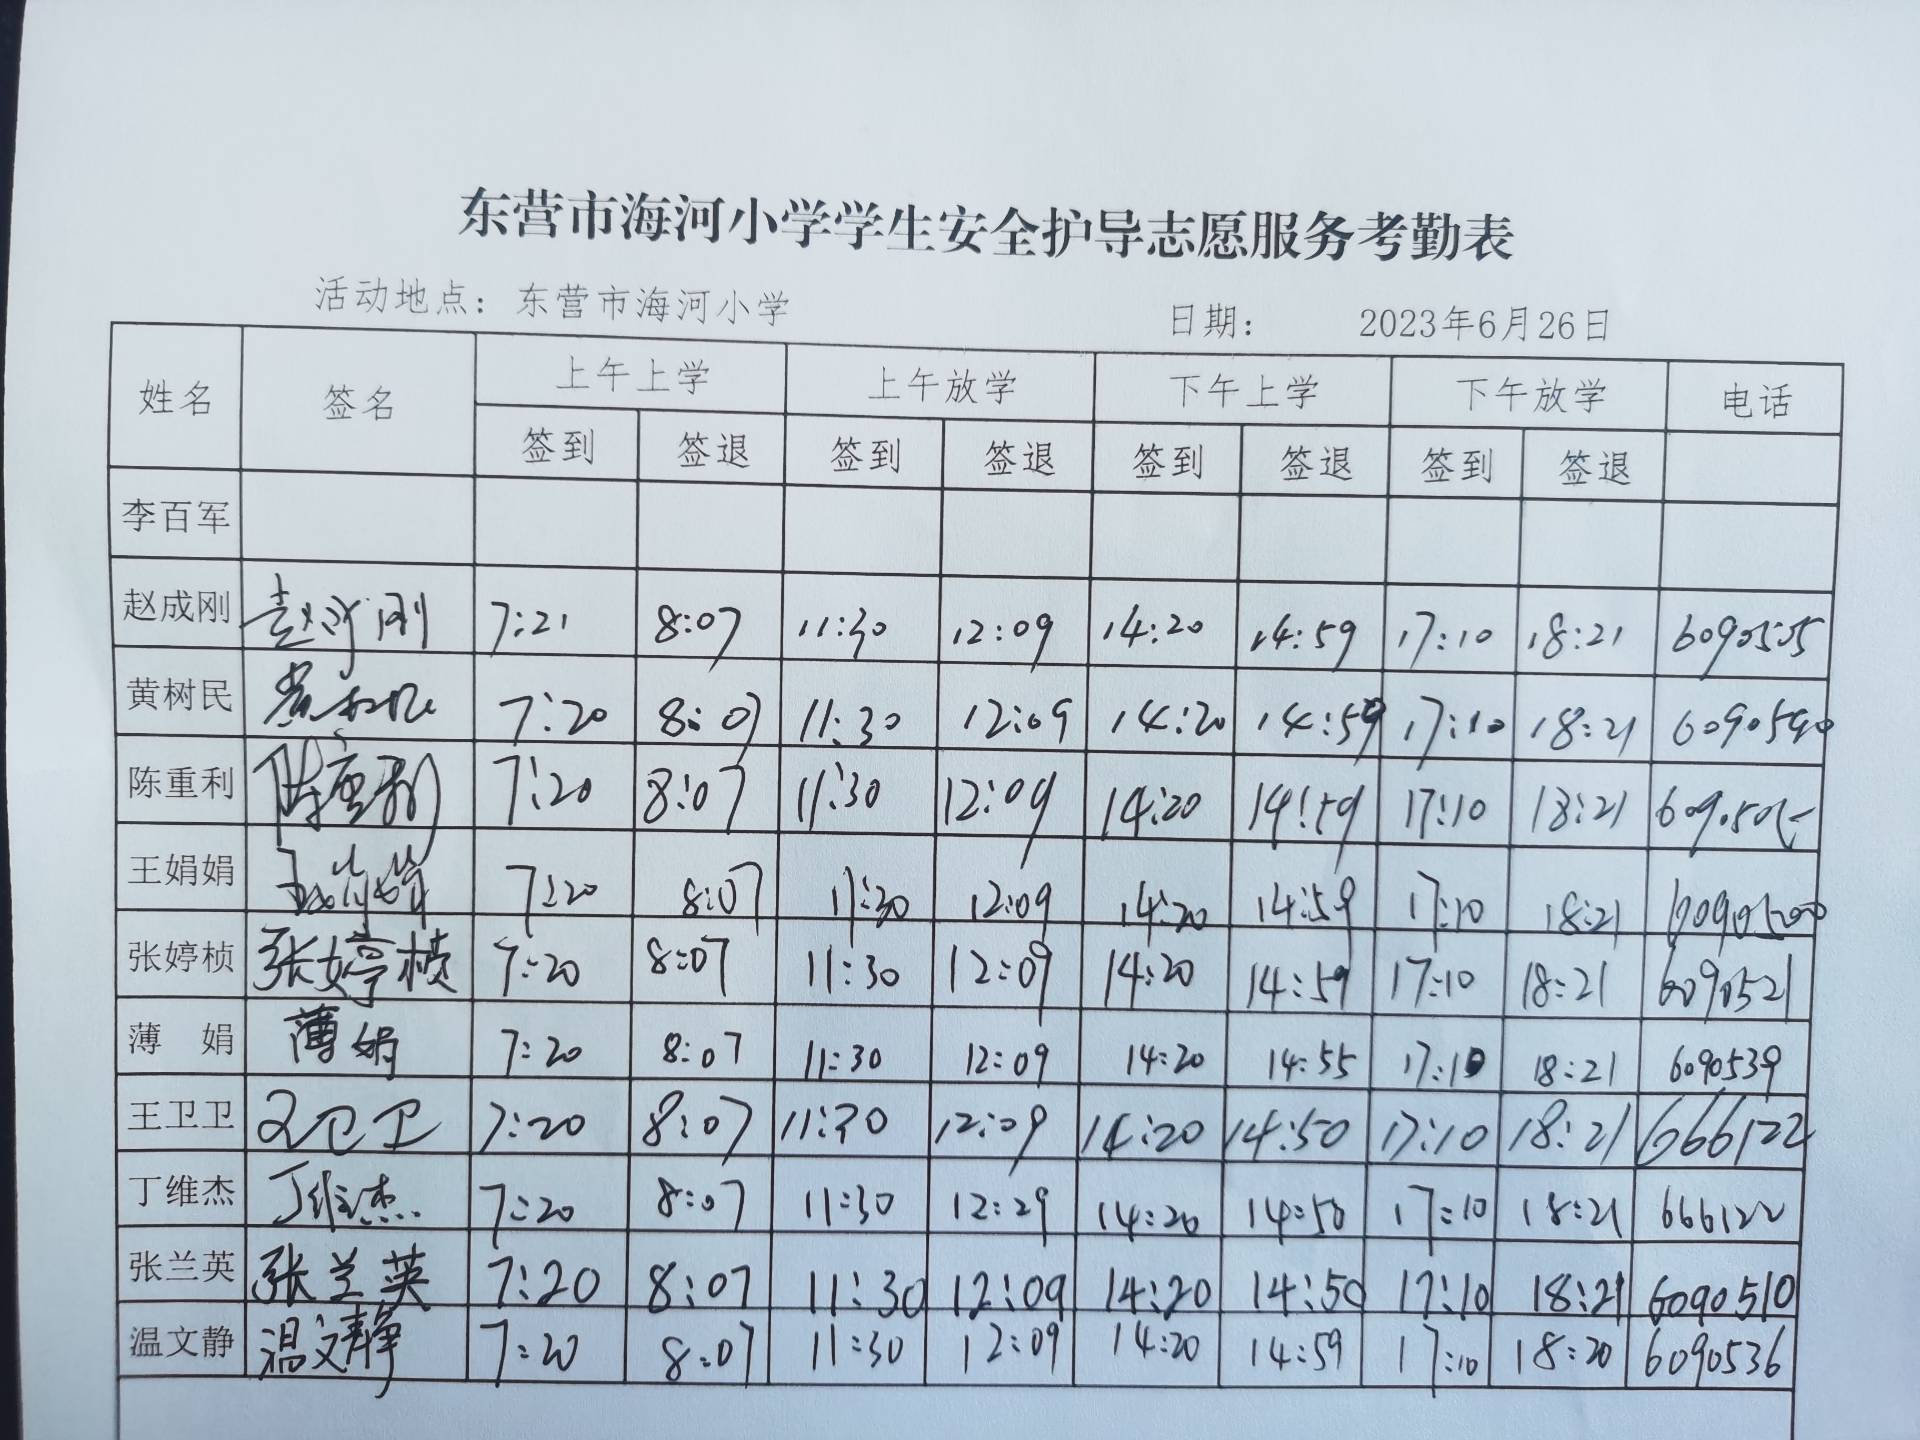 东营市海河小学学生安全护导志愿服务考勤表
活动地点：东营市海河小学 日期： 2023年6月26日
姓名 签名 上午上学 上午放学 下午上学 下午放学 电话
签到 签退 签到 签退 签到 签退 签到 签退
李百军
赵成刚 赵成刚 7:21 8:07 11:30 12:09 14:20 14:59 17:10 18:21 6090505
黄树民 黄树民 7:20 8:07 11:30 12:09 14:20 14:59 17:10 18:21 6090590
陈重利 陈重利 7:20 8:07 11:30 12:09 14:20 14:59 17:10 18:21
王娟娟 王娟娟 7:20 8:07 11:30 12:09 14:20 14:59 17:10 18:21 6090500
张婷桢 张婷桢 7:20 8:07 11:30 12:09 14:20 14:59 17:10 18:21 6090521
薄娟 薄娟 7:20 8:07 11:30 12:09 14:20 14:55 17:10 18:21 6090539
王卫卫 王卫卫 7:20 8:07 11:30 12:09 14:20 14:50 17:10 18:21 666122
丁维杰 丁维杰 7:20 8:07 11:30 12:29 14:20 14:50 17:10 18:21 666122
张兰英 张兰英 7:20 8:07 11:30 12:09 14:20 14:50 17:10 18:21 6090510
温文静 温文静 7:20 8:07 11:30 12:09 14:20 14:59 17:10 18:20 6090536